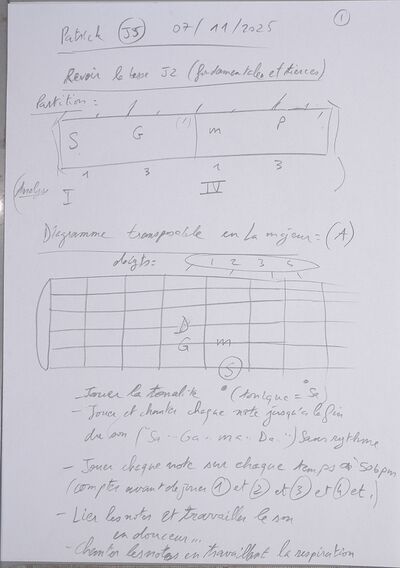 Patrick J5 07/11/2025 1
Revoir la basse J2 (fondamentales et tierces)
Partition :
S G (') m P '
1 3 1 3
(Analyse I IV )
Diagramme transposable en La majeur = (A)
doigts = 1 2 3 4
D
G m
S
Jouer la tonalité (tonique = Sa)
- Jouer et chanter chaque note jusqu'à la fin
du son ("Sa .. Ga .. ma .. Da ..") sans rythme
- Jouer chaque note sur chaque temps à 50bpm
(compter avant de jouer 1 et 2 et 3 et 4 et .)
- Lier les notes et travailler le son
en douceur...
- Chanter les notes en travaillant la respiration